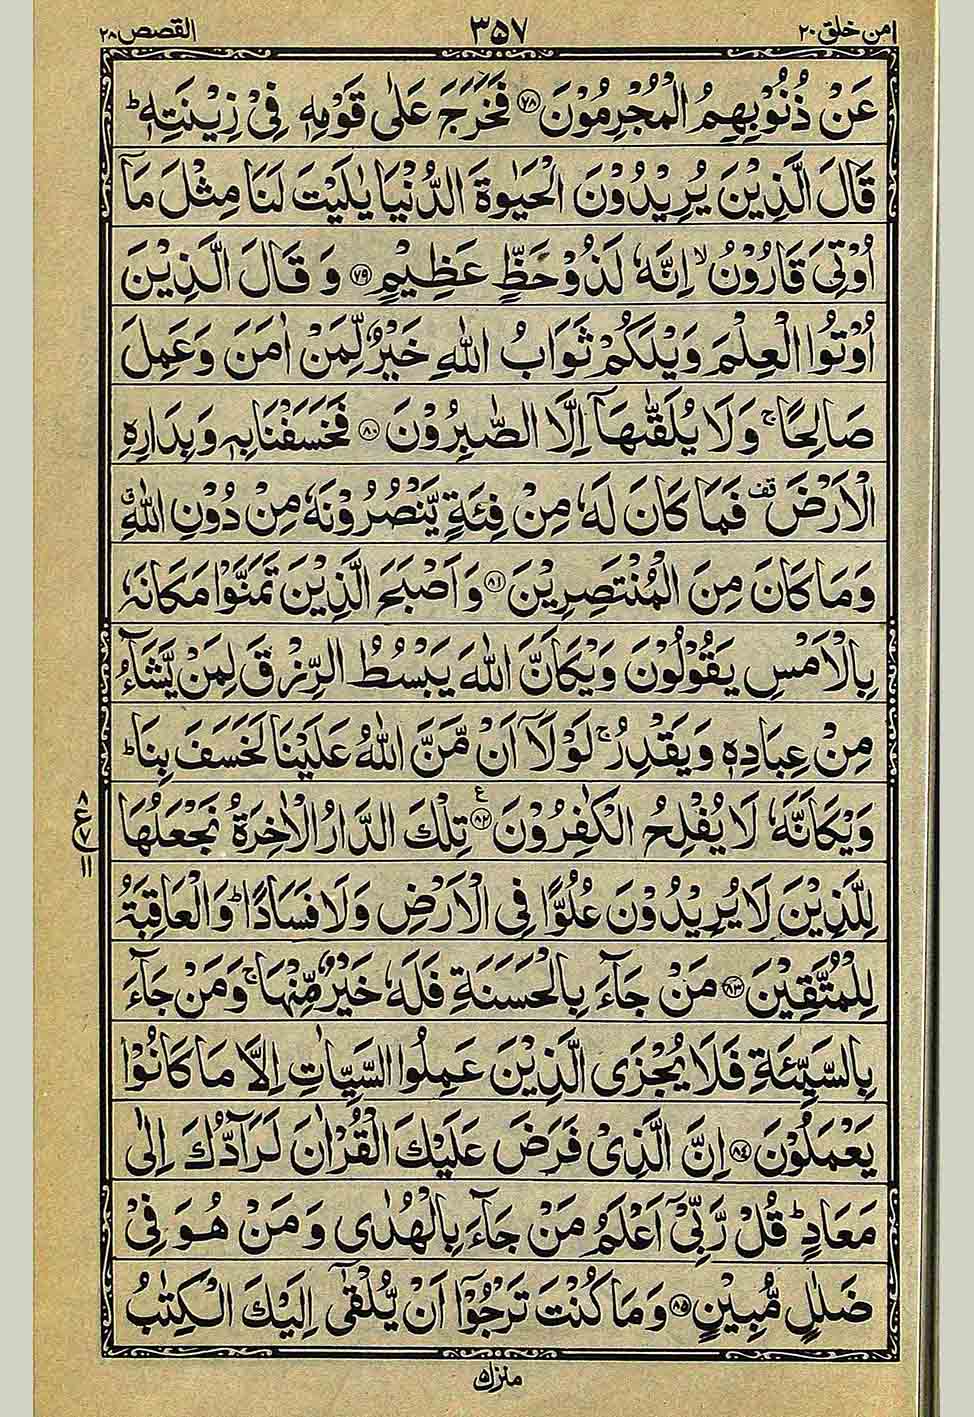 امن خلق ۲۰ ۳۵۷ القصص ۲۸
عَنْ ذُنُوْبِهِمُ الْمُجْرِمُوْنَ ﴿۷۸﴾ فَخَرَجَ عَلٰى قَوْمِهٖ فِیْ زِیْنَتِهٖ ؕ
قَالَ الَّذِیْنَ یُرِیْدُوْنَ الْحَیٰوةَ الدُّنْیَا یٰلَیْتَ لَنَا مِثْلَ مَاۤ
اُوْتِیَ قَارُوْنُ ۙ اِنَّهٗ لَذُوْ حَظٍّ عَظِیْمٍ ﴿۷۹﴾ وَ قَالَ الَّذِیْنَ
اُوْتُوا الْعِلْمَ وَیْلَكُمْ ثَوَابُ اللّٰهِ خَیْرٌ لِّمَنْ اٰمَنَ وَعَمِلَ
صَالِحًا ۚ وَلَا یُلَقّٰىهَاۤ اِلَّا الصّٰبِرُوْنَ ﴿۸۰﴾ فَخَسَفْنَا بِهٖ وَبِدَارِهِ
الْاَرْضَ ۫ فَمَا كَانَ لَهٗ مِنْ فِئَةٍ یَّنْصُرُوْنَهٗ مِنْ دُوْنِ اللّٰهِ ۗ
وَمَا كَانَ مِنَ الْمُنْتَصِرِیْنَ ﴿۸۱﴾ وَاَصْبَحَ الَّذِیْنَ تَمَنَّوْا مَكَانَهٗ
بِالْاَمْسِ یَقُوْلُوْنَ وَیْكَاَنَّ اللّٰهَ یَبْسُطُ الرِّزْقَ لِمَنْ یَّشَآءُ
مِنْ عِبَادِهٖ وَیَقْدِرُ ۚ لَوْلَاۤ اَنْ مَّنَّ اللّٰهُ عَلَیْنَا لَخَسَفَ بِنَا ؕ
وَیْكَاَنَّهٗ لَا یُفْلِحُ الْكٰفِرُوْنَ ﴿۸۲﴾ ع تِلْكَ الدَّارُ الْاٰخِرَةُ نَجْعَلُهَا
۸ ع ۷ ۱۱
لِلَّذِیْنَ لَا یُرِیْدُوْنَ عُلُوًّا فِی الْاَرْضِ وَلَا فَسَادًا ؕ وَالْعَاقِبَةُ
لِلْمُتَّقِیْنَ ﴿۸۳﴾ مَنْ جَآءَ بِالْحَسَنَةِ فَلَهٗ خَیْرٌ مِّنْهَا ۚ وَمَنْ جَآءَ
بِالسَّیِّئَةِ فَلَا یُجْزَى الَّذِیْنَ عَمِلُوا السَّیِّاٰتِ اِلَّا مَا كَانُوْا
یَعْمَلُوْنَ ﴿۸۴﴾ اِنَّ الَّذِیْ فَرَضَ عَلَیْكَ الْقُرْاٰنَ لَرَآدُّكَ اِلٰى
مَعَادٍ ؕ قُلْ رَّبِّیْۤ اَعْلَمُ مَنْ جَآءَ بِالْهُدٰى وَمَنْ هُوَ فِیْ
ضَلٰلٍ مُّبِیْنٍ ﴿۸۵﴾ وَمَا كُنْتَ تَرْجُوْۤا اَنْ یُّلْقٰۤى اِلَیْكَ الْكِتٰبُ
منزل ۵